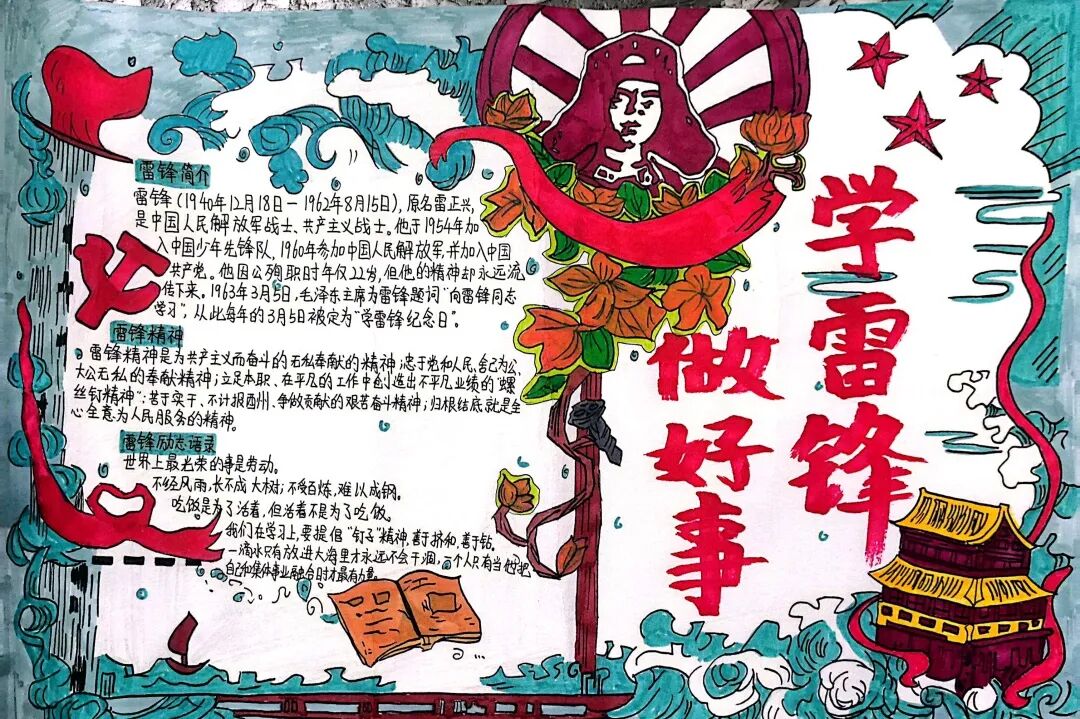 学雷锋
做好事
雷锋简介
雷锋(1940年12月18日—1962年8月15日),原名雷正兴,
是中国人民解放军战士、共产主义战士。他于1954年加
入中国少年先锋队,1960年参加中国人民解放军,并加入中国
共产党。他因公殉职时年仅22岁,但他的精神却永远流
传下来。1963年3月5日,毛泽东主席为雷锋题词"向雷锋同志
学习",从此每年的3月5日被定为"学雷锋纪念日"。
雷锋精神
雷锋精神是为共产主义而奋斗的无私奉献的精神;忠于党和人民、舍己为公、
大公无私的奉献精神;立足本职、在平凡的工作中创造出不平凡业绩的"螺
丝钉精神";苦于实干、不计报酬、争做贡献的艰苦奋斗精神;归根结底就是全
心全意为人民服务的精神。
雷锋励志语录
世界上最光荣的事是劳动。
不经风雨,长不成大树;不受百炼,难以成钢。
吃饭是为了活着,但活着不是为了吃饭。
我们在学习上,要提倡"钉子"精神,善于挤和,善于钻。
一滴水只有放进大海里才永远不会干涸,一个人只有当他把
自己和集体事业融合时才最有力量